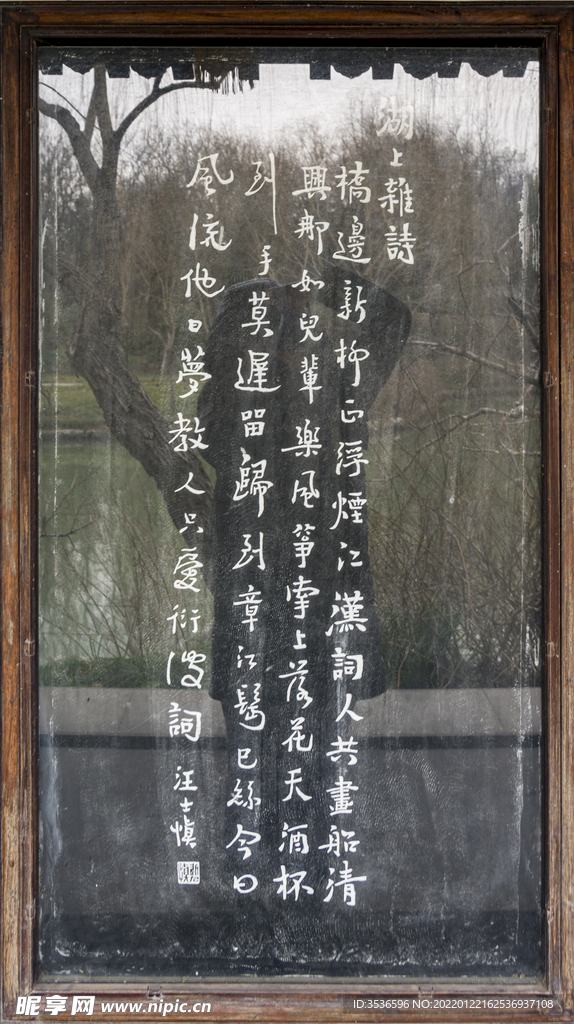 湖上雜詩
橋邊新柳正浮煙江漢詞人共畫船清
興那如兒輩樂風箏牽上落花天酒杯
到手莫遲留歸到章江鬢已絲今日
風流他日夢教人只愛衍波詞
汪士慎
昵享网 www.nipic.cn
ID:3536596 NO:20220122162536937108